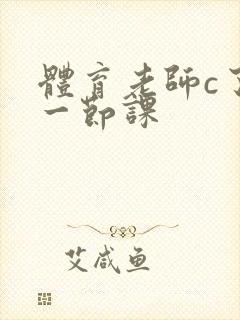 體育老師c了
一節課
艾咸鱼